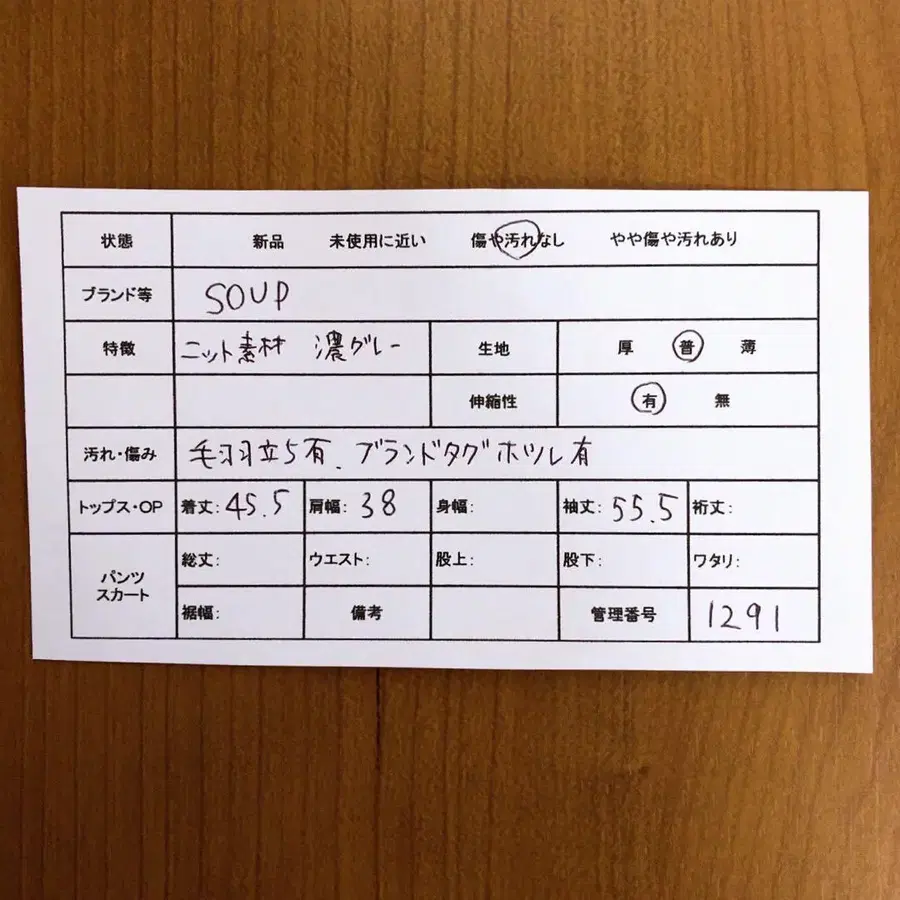 状態 新品 未使用に近い 傷や汚れなし やや傷や汚れあり
ブランド等 SOUP
特徴 ニット素材 濃グレー 生地 厚 普 薄
伸縮性 有 無
汚れ・傷み 毛羽立ち有、ブランドタグホツレ有
トップス・OP 着丈: 45.5 肩幅: 38 身幅: 袖丈: 55.5 裄丈:
パンツ スカート 総丈: ウエスト: 股上: 股下: ワタリ:
裾幅: 備考 管理番号 1291